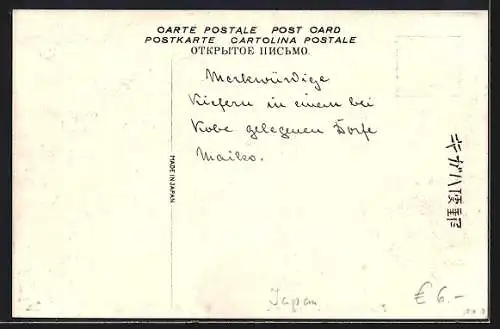 CARTE POSTALE POST CARD
POSTKARTE CARTOLINA POSTALE
ОТКРЫТОЕ ПИСЬМО.
Merkwürdige
Kiefern in einem bei
Kobe gelegenen Dorfe
Maiko.
MADE IN JAPAN
きがは便郵
Japan
€ 6.-